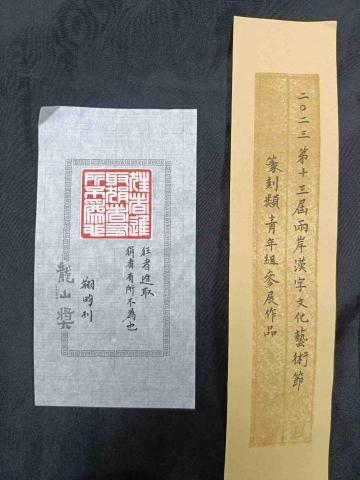 二〇二三第十三屆兩岸漢字文化藝術節
篆刻類青年組參展作品
狂者進取
狷者有所不為也
翔昀刊
龍山獎